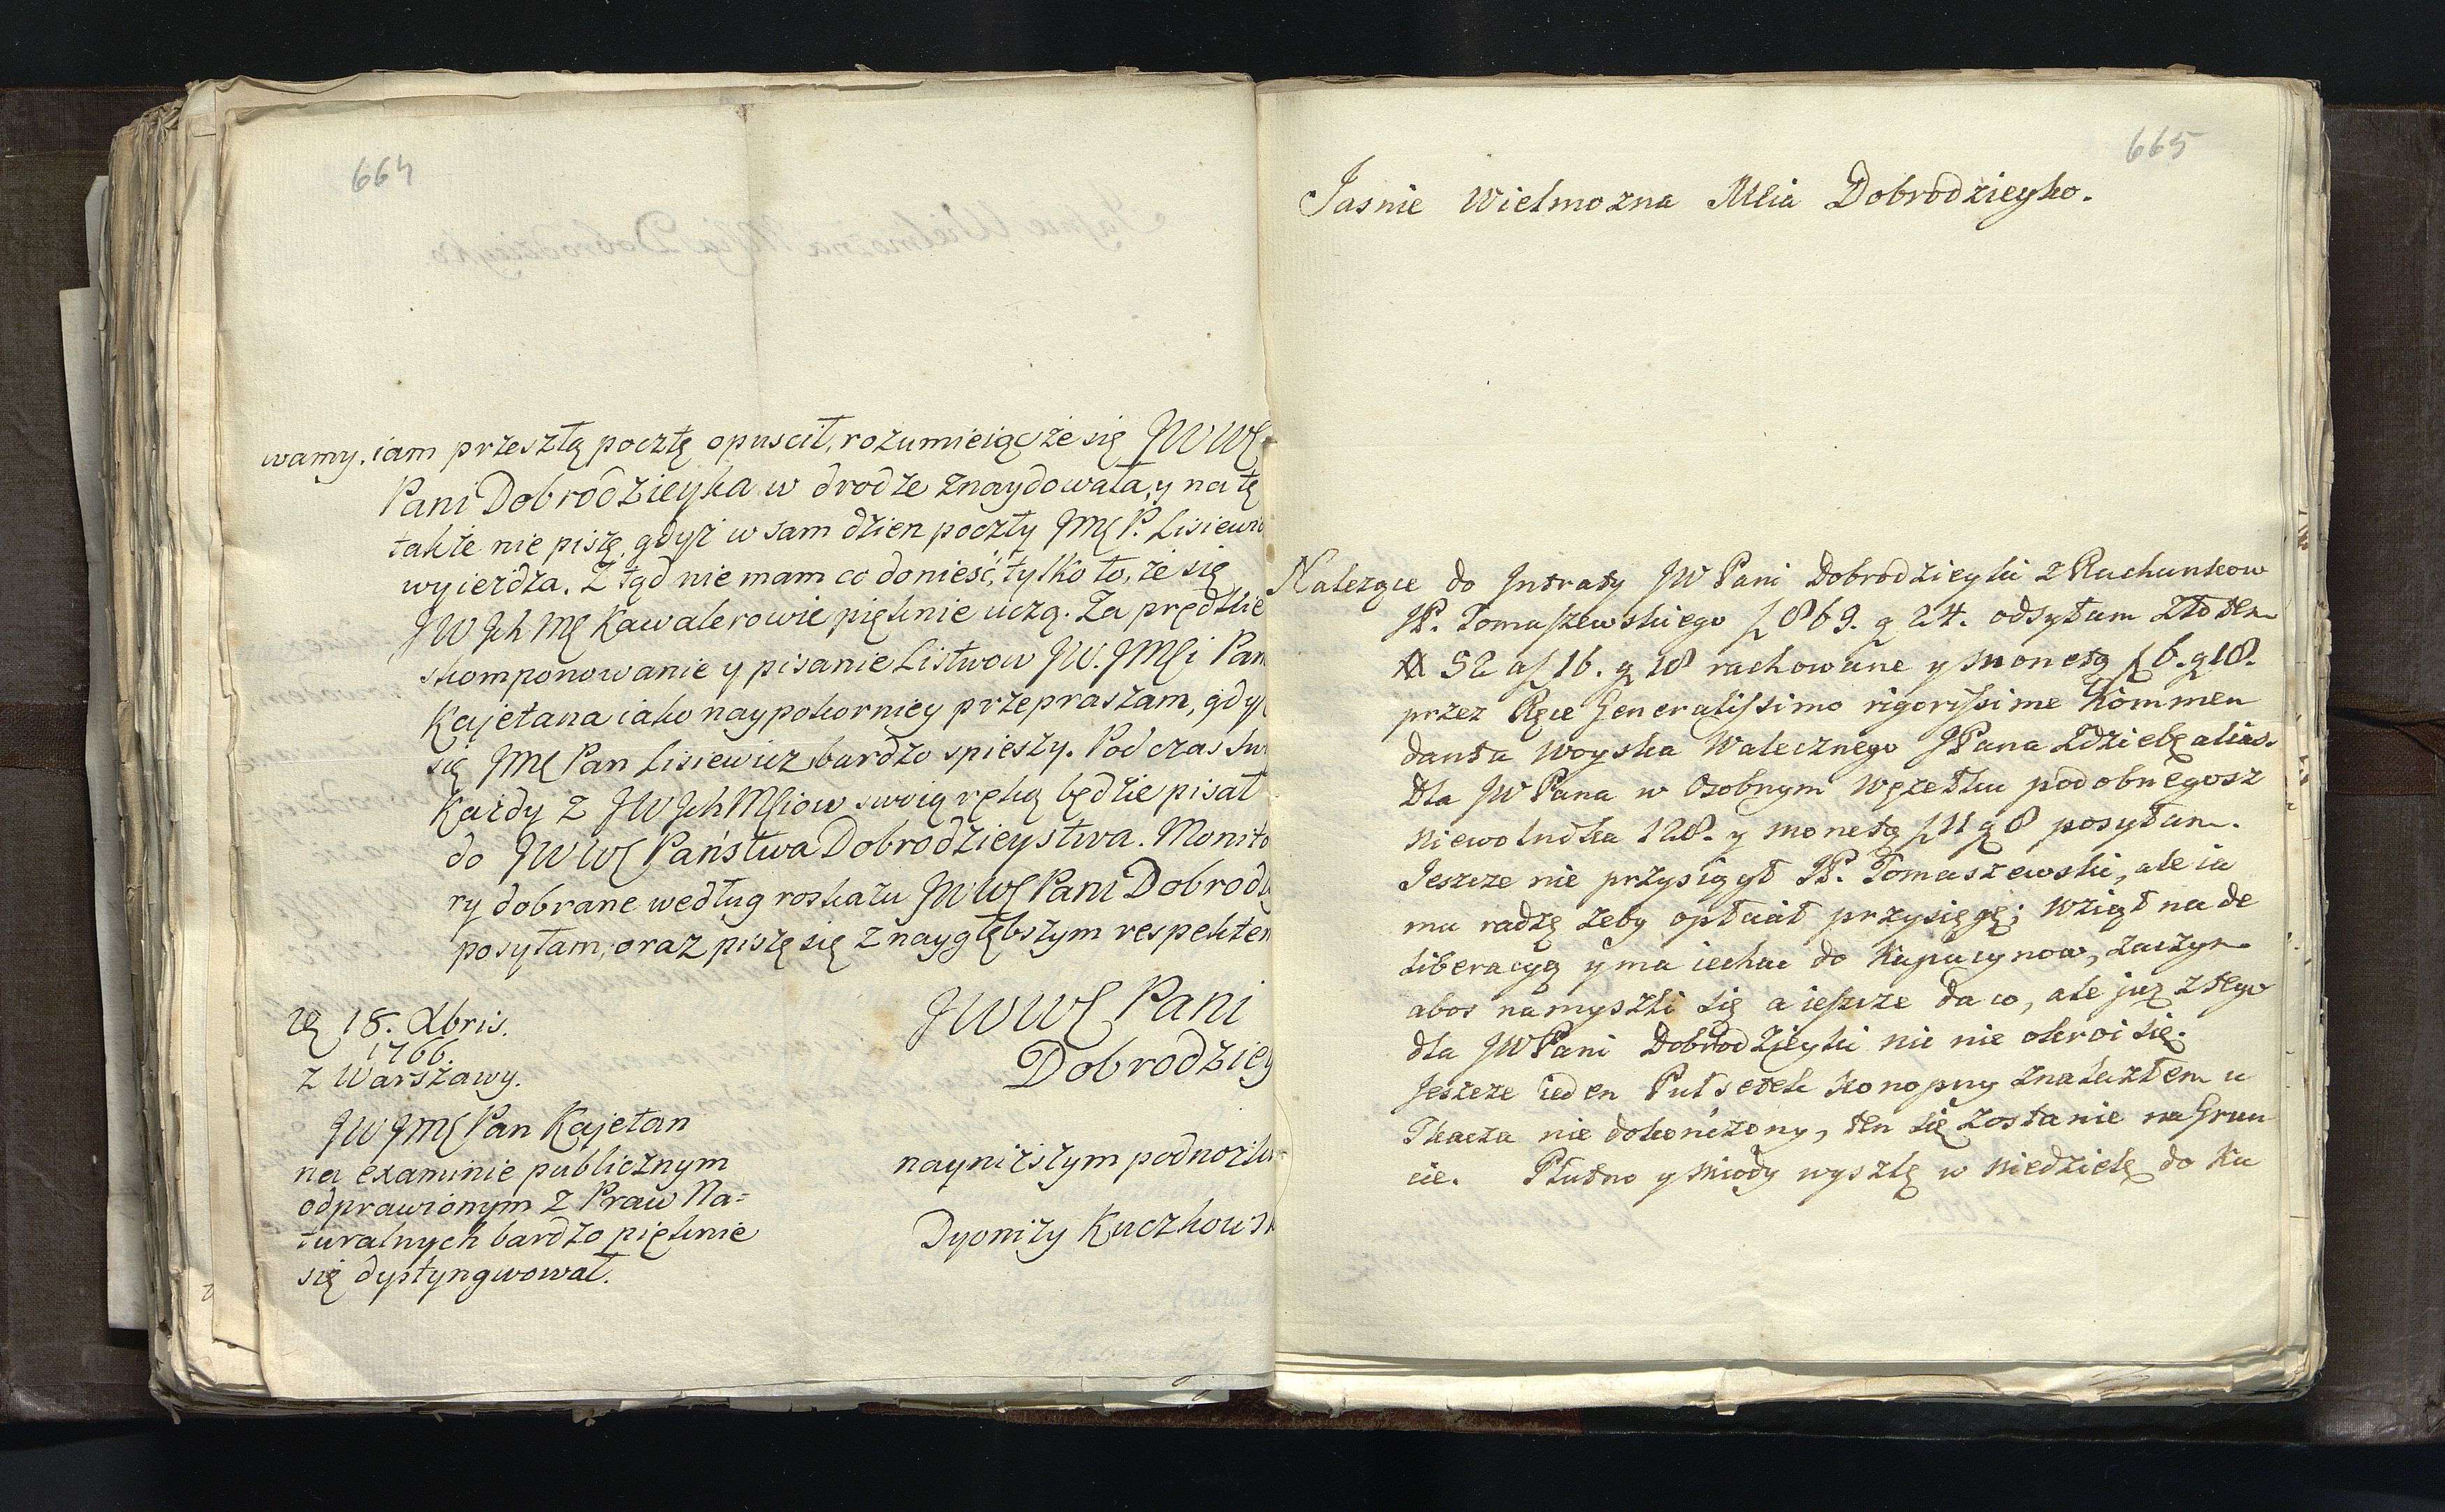 664
wamy. iam przeszłą pocztę opuscił, rozumieiąc że się JWW
Pani Dobrodzieyka w drodze znaydowała, y na tę
także nie piszę, gdyż w sam dzien poczty JMę P. Lisiewi
wyieżdża. Z tąd nie mam co donieść, tylko to, że się
JW Jch Mę Kawalerowie pięknie uczą. Za prędkie
skomponowanie y pisanie Listwow JW. JMęi Pan
Kajetana iako naypokorniey przepraszam, gdyż
się JMę Pan Lisiewicz bardzo spieszy. Pod czas Sw
Każdy z JW JchMęiow swoią ręką będzie pisał
do JWW Państwa Dobrodzieystwa. Monito
ry dobrane według roskazu JWW Pani Dobrodz
posyłam, oraz piszę się z naygłębszym respektem
JWW Pani
Dobrodziey
d. 18. Xbris.
1766.
z Warszawy.
JW JMę Pan Kajetan
na examinie publicznym
odprawionym z Praw Na=
turalnych bardzo pięknie
się dystyngwował.
nayniższym podnożk
Dyonizy Kuczkowsk
665
Jasnie Wielmozna Mćia Dobrodzieyko.
Nalezące do Jntraty JW Pani Dobrodzieyki z Rachunkow
JP. Tomaszewskiego f 869. g 24. odsyłam Złotem
# 52 af 16. g 18 rachowane y Monetą f 6. g 18.
przez Ręce Generalissimo rigorissime Kommen
danta Woyska Walecznego JPana Zdziebę alias.
Dla JW Pana w Osobnym Węzełku podobnegosz
Niewolnika 128. y Monetą f 11 g 8 posyłam.
Jeszcze nie przysiągł JP. Tomaszewski, ale ia
mu radzę zeby opłacił przysięgę; Wziął na de
liberacyą y ma iechac do Kapucynow, zaczym
abos namyszli się a ieszcze da co, ale już z tego
dla JW Pani Dobrodzieyki nic nie okroi się.
Jeszcze ieden Puł setek Konopny znalazłem u
Tkacza nie dokończony, ten się zostanie na Grun
cie. Płutno y Miody wyszlę w Niedzielę do Ku